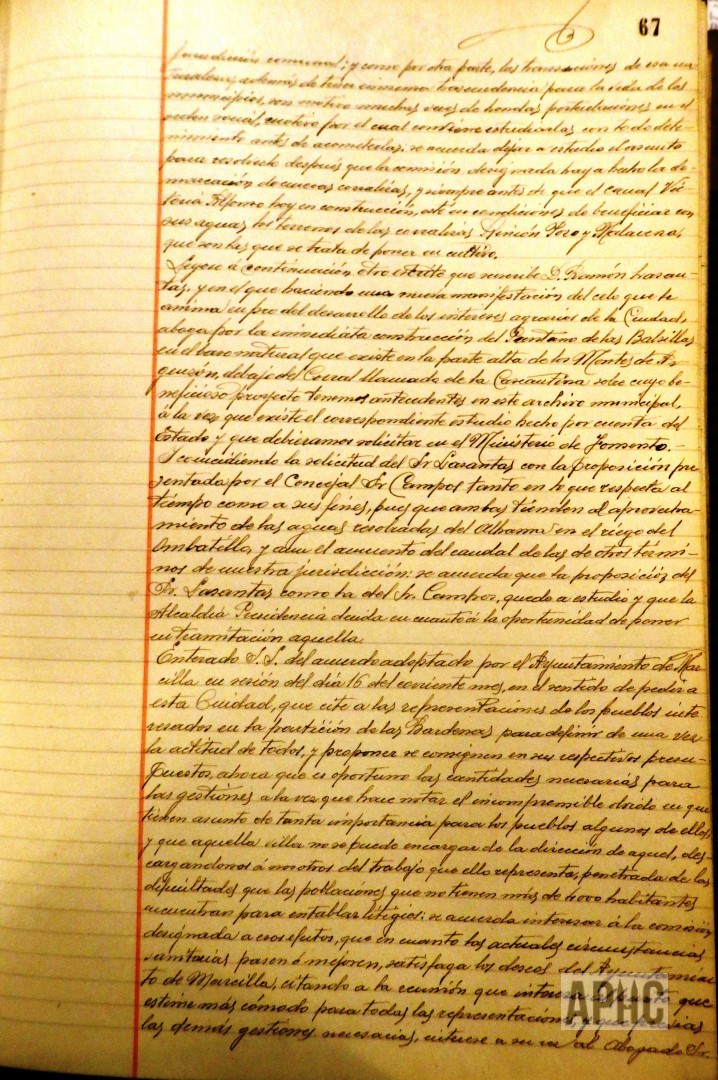 67
jurisdicción comunal; y como por otra parte, las transacciones de esa na-
turaleza, además de tener inmensa trascendencia para la vida de los
municipios, son motivo muchas veces de hondas perturbaciones en el
orden social, motivo por el cual conviene estudiarlas con todo dete-
nimiento antes de acometerlas, se acuerda dejar a estudio el asunto
para resolverlo después que la comisión designada haya hecho la de-
marcación de nuevas corralizas, y siempre antes de que el canal Vic-
toria Alfonso hoy en construcción, esté en condiciones de beneficiar con
sus aguas los terrenos de las corralizas
que son las que se trata de poner en cultivo.
Leyose á continuación otro escrito que suscribe D. Ramón Lasan-
tas, y en el que haciendo una nueva manifestación del celo que le
anima en pro del desarrollo de los intereses agrarios de la Ciudad,
aboga por la inmediata construcción del Pantano de las Balsillas
en el vaso natural que existe en la parte alta de los Montes de
debajo del Corral llamado de la sobre cuyo be-
neficioso proyecto tenemos antecedentes en este archivo municipal,
á la vez que existe el correspondiente estudio hecho por cuenta del
Estado y que debieramos solicitar en el Ministerio de Fomento.-
Y coincidiendo la solicitud del Sr Lasantas con la proposición pre
sentada por el Concejal Sr Campos tanto en lo que respecta al
tiempo como a sus fines, pues que ambas tienden al aprovecha-
miento de las aguas del Alhama en el riego del
Ombatillo, y aun el aumento del caudal de las de otros térmi-
nos de nuestra jurisdicción: se acuerda que la proposición del
Sr. Lasantas como la del Sr. Campos, quede a estudio y que la
Alcaldía Presidencia decida en cuanto á la oportunidad de poner
en tramitación aquella.
Enterado S.S. del acuerdo adoptado por el Ayuntamiento de Mar-
cilla en sesión del día 16 del corriente mes, en el sentido de pedir a
esta Ciudad, que cite a las representaciones de los pueblos inte
resados en la partición de las Bardenas para definir de una vez
la actitud de todos, y proponer se consignen en sus respectivos presu-
puestos, ahora que es oportuno las cantidades necesarias para
las gestiones a la vez que hace notar el olvido en que
tienen asunto de tanta importancia para los pueblos algunos de ellos,
y que aquella villa no se puede encargar de la dirección de aquel, des-
cargandonos á nosotros del trabajo que ello representa, penetrada de las
dificultades que las poblaciones que no tienen más de 4000 habitantes
encuentran para entablar litigios: se acuerda interesar á la comisión
designada a esos efectos, que en cuanto las actuales circunstancias
sanitarias pasen ó mejoren, satisfaga los deseos del Ayuntamien
to de Marcilla, citando a la reunión que interesa que
estime más cómodo para todas las representaciones y que para
las demás gestiones necesarias, á su vez al Abogado Sr.
APHC